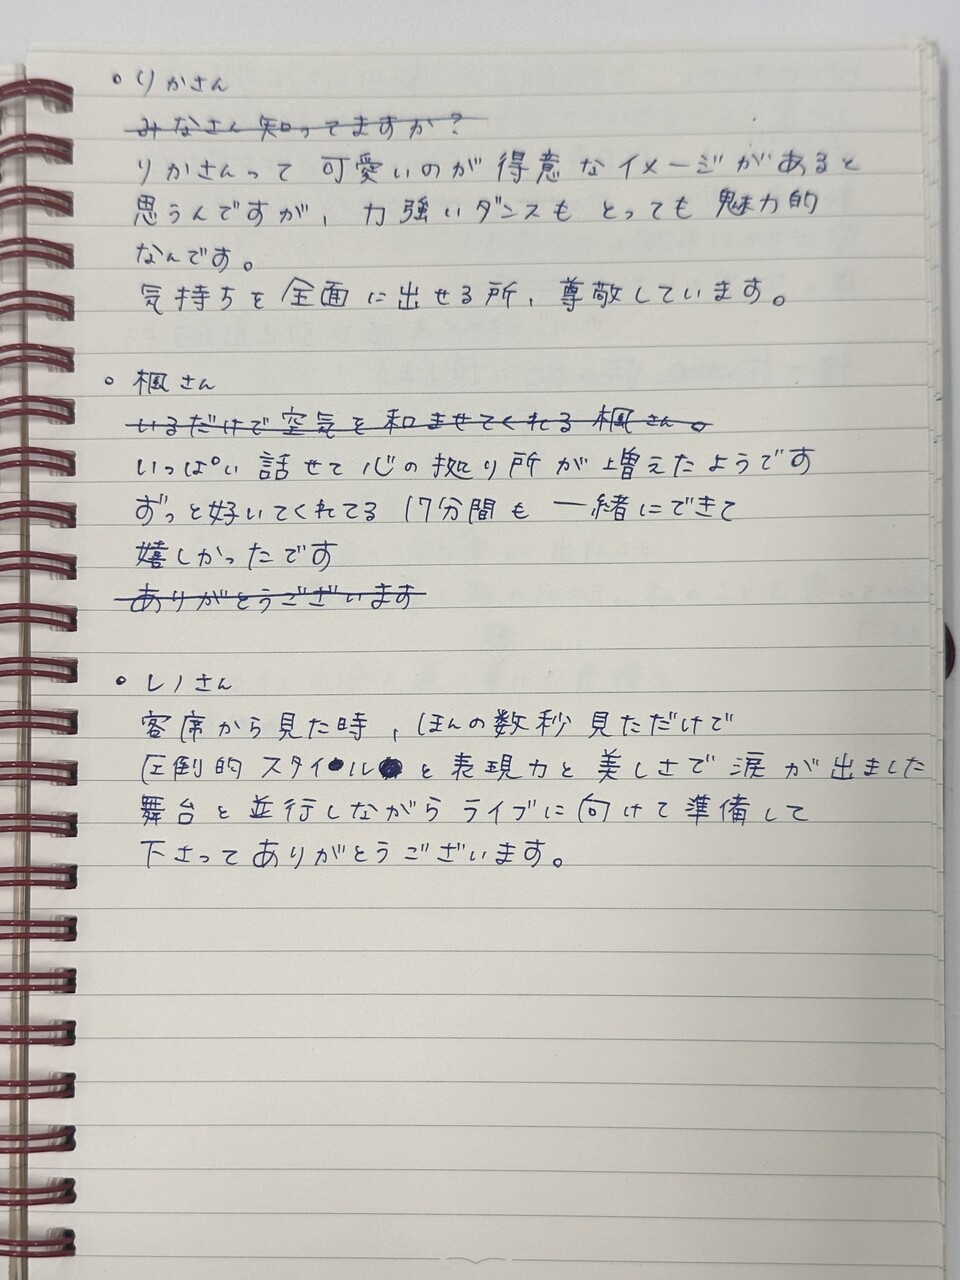 ・りかさん
みなさん知ってますか？
りかさんって可愛いのが得意なイメージがあると
思うんですが、力強いダンスもとっても魅力的
なんです。
気持ちを全面に出せる所、尊敬しています。
・楓さん
いるだけで空気を和ませてくれる楓さん。
いっぱい話せて心の拠り所が増えたようです
ずっと好いてくれてる17分間も一緒にできて
嬉しかったです
ありがとうございます
・レノさん
客席から見た時、ほんの数秒見ただけで
圧倒的スタイルと表現力と美しさで涙が出ました
舞台と並行しながらライブに向けて準備して
下さってありがとうございます。